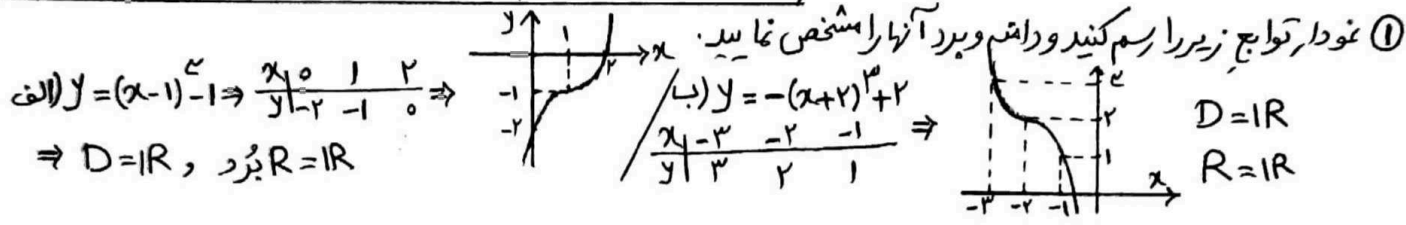 ① نمودار توابع زیر را رسم کنید و دامنه و برد آنها را مشخص نمایید.
الف) y = (x-1)^۳ - 1 ⇒
x | ۰ ۱ ۲
y | -۲ -۱ ۰ ⇒
y ۱ ۲ x -۱ -۲
⇒ D = IR , بُرد R = IR
ب) y = -(x+۲)^۳ + ۲
x | -۳ -۲ -۱
y | ۳ ۲ ۱ ⇒
۳ ۲ ۱ x -۳ -۲ -۱
D = IR
R = IR